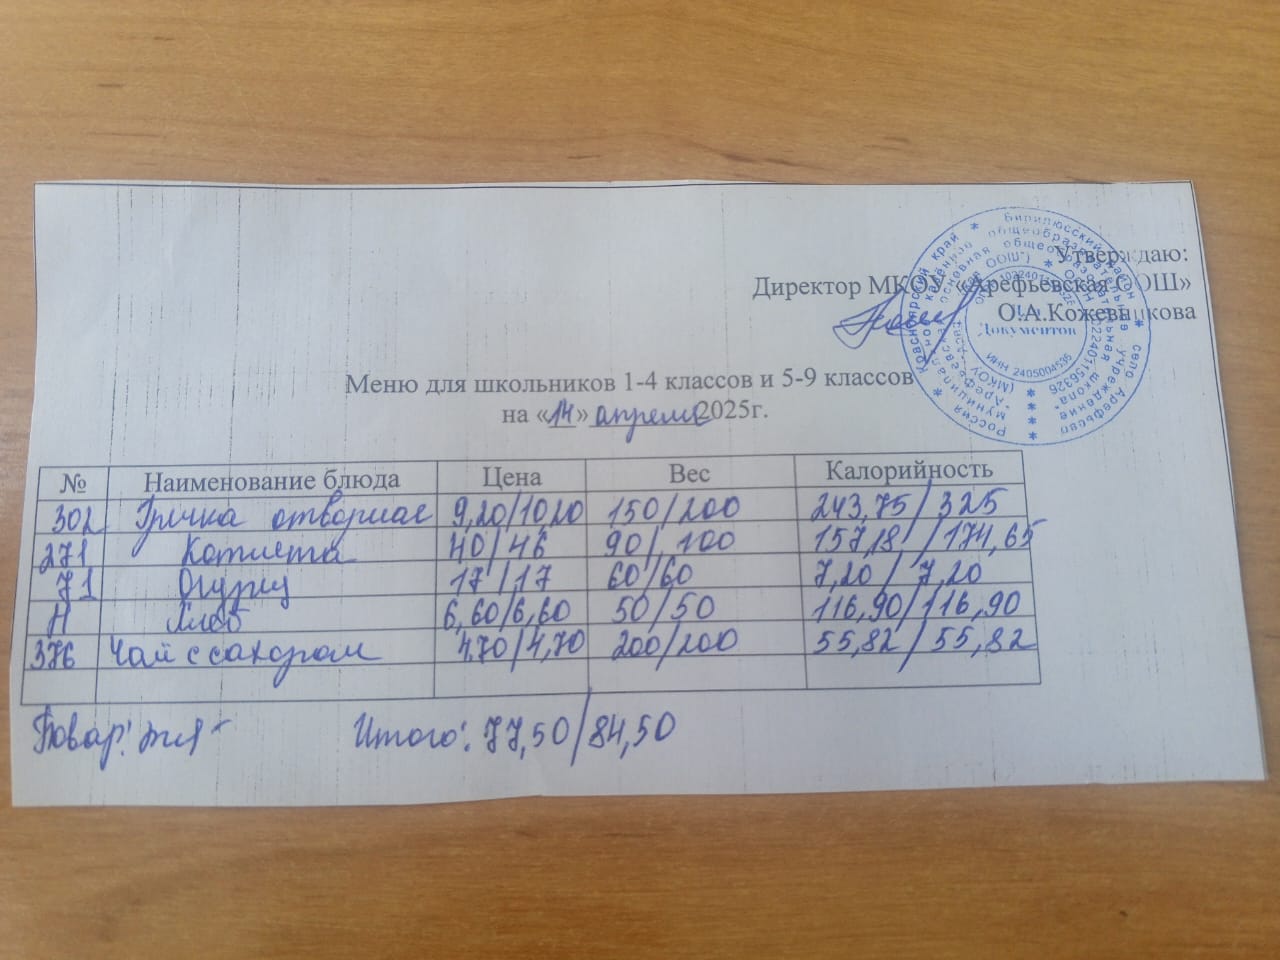 Утверждаю:
Директор МКОУ «Арефьевская ООШ»
О.А.Кожевникова
Меню для школьников 1-4 классов и 5-9 классов
на «14» апреля 2025г.
№ Наименование блюда Цена Вес Калорийность
302 Гречка отворная 9,20/10,20 150/200 243,75/325
271 Котлета 40/46 90/100 157,18/174,65
71 Огурец 17/17 60/60 7,20/7,20
Н Хлеб 6,60/6,60 50/50 116,90/116,90
376 Чай с сахором 4,70/4,70 200/200 55,82/55,82
Повар: Итого: 77,50/84,50
Россия * Красноярский край * Бирилюсский район * село Арефьево
Для
Документов
ИНН 2405004535